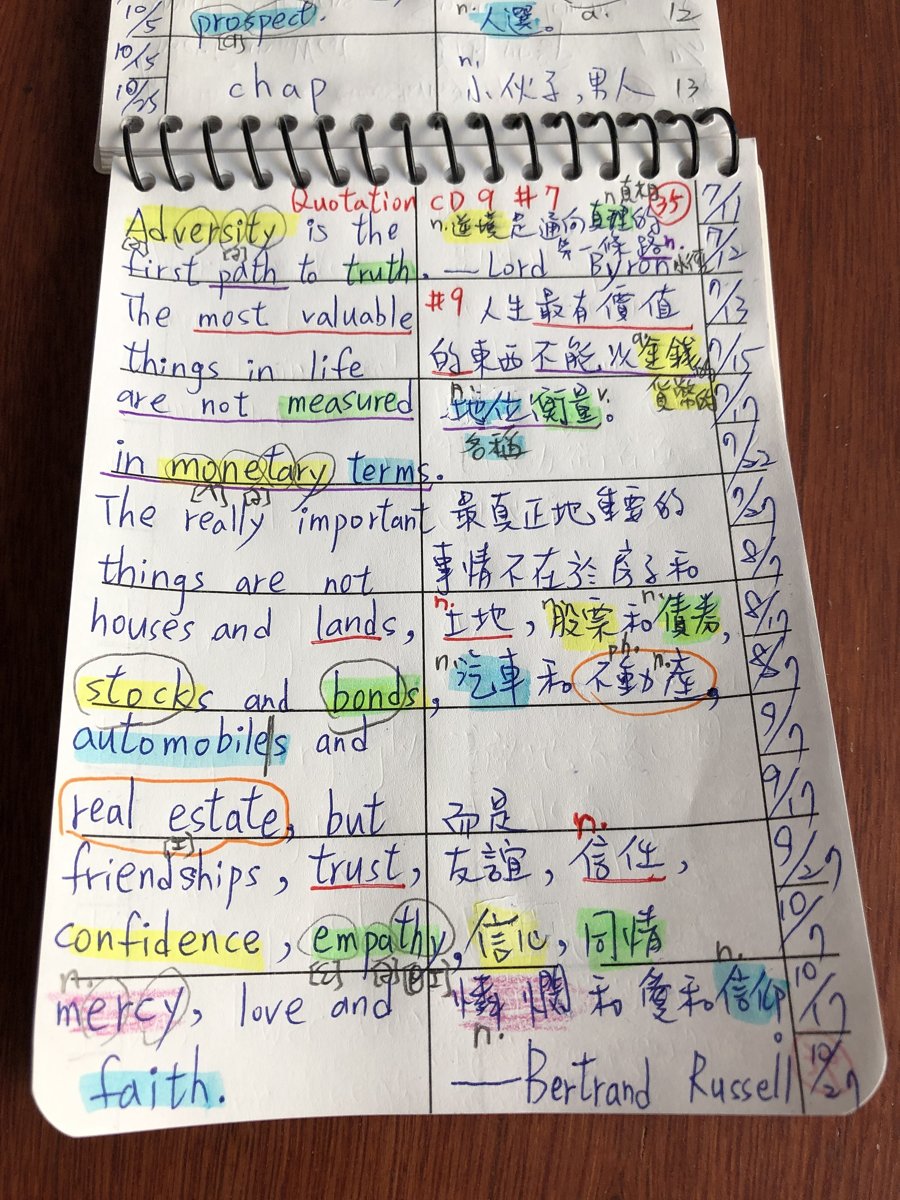 10/5 prospect. n. 人選。 a. 12
[a]
10/15 n.
10/25 chap 小伙子,男人 13
Quotation CD 9 #7 n真相 35 7/11
Adversity is the n.逆境是通向真理的
[ə] [ə] 第一條路n. 7/12
first path to truth. —Lord Byron
The most valuable #9 人生最有價值 7/13
things in life 的東西不能以金錢 a. 7/15
are not measured n.地位衡量v。 貨幣的 7/17
in monetary terms. 各種 7/22
[ʌ] [ə]
The really important 最真正地重要的 7/27
things are not 事情不在於房子和 8/7
houses and lands, n.土地,n.股票和n.債券, 8/17
stocks and bonds, n.汽車和ph.不動產n., 8/27
automobiles and 9/7
real estate, but 而是 n. 9/17
[I]
friendships, trust, 友誼,信任, 9/27
confidence, empathy, 信心,同情 10/7
n. n.
mercy, love and 憐憫和愛和信仰 10/17
n.
faith. —Bertrand Russell 10/27